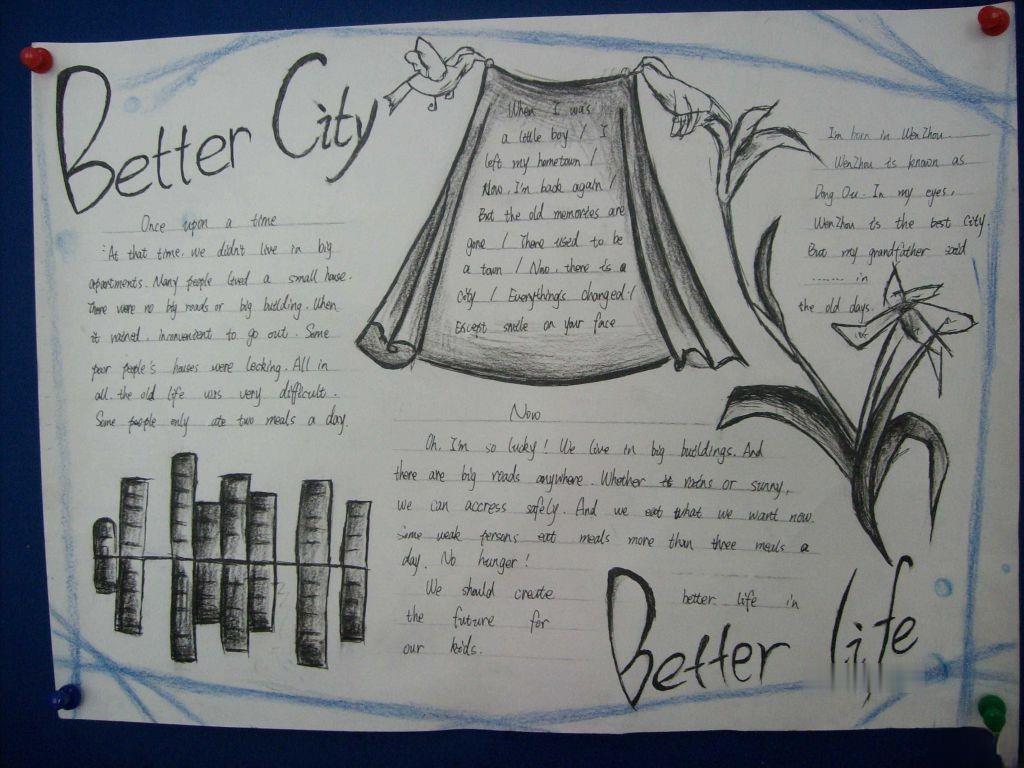 Better City
Once upon a time
At that time, we didn't live in big
apartments. Many people lived a small house.
There were no big roads or big building. When
it rained, inconvenient to go out. Some
poor people's houses were leeking. All in
all. the old life was very difficult.
Some people only ate two meals a day.
When I was
a little boy / I
left my hometown /
Now, I'm back again /
But the old memories are
gone / There used to be
a town / Now, there is a
city / Everything's changed /
Except smile on your face
I'm born in WenZhou
WenZhou is known as
Dong Ou. In my eyes,
WenZhou is the best city.
But my grandfather said
....... in
the old days.
Now
Oh, I'm so lucky! We live in big buildings. And
there are big roads anywhere. Whether rains or sunny,
we can accress safely. And we eat what we want now.
Some weak persons eat meals more than three meals a
day. No hunger!
We should create
the future for
our kids.
better life in
Better life